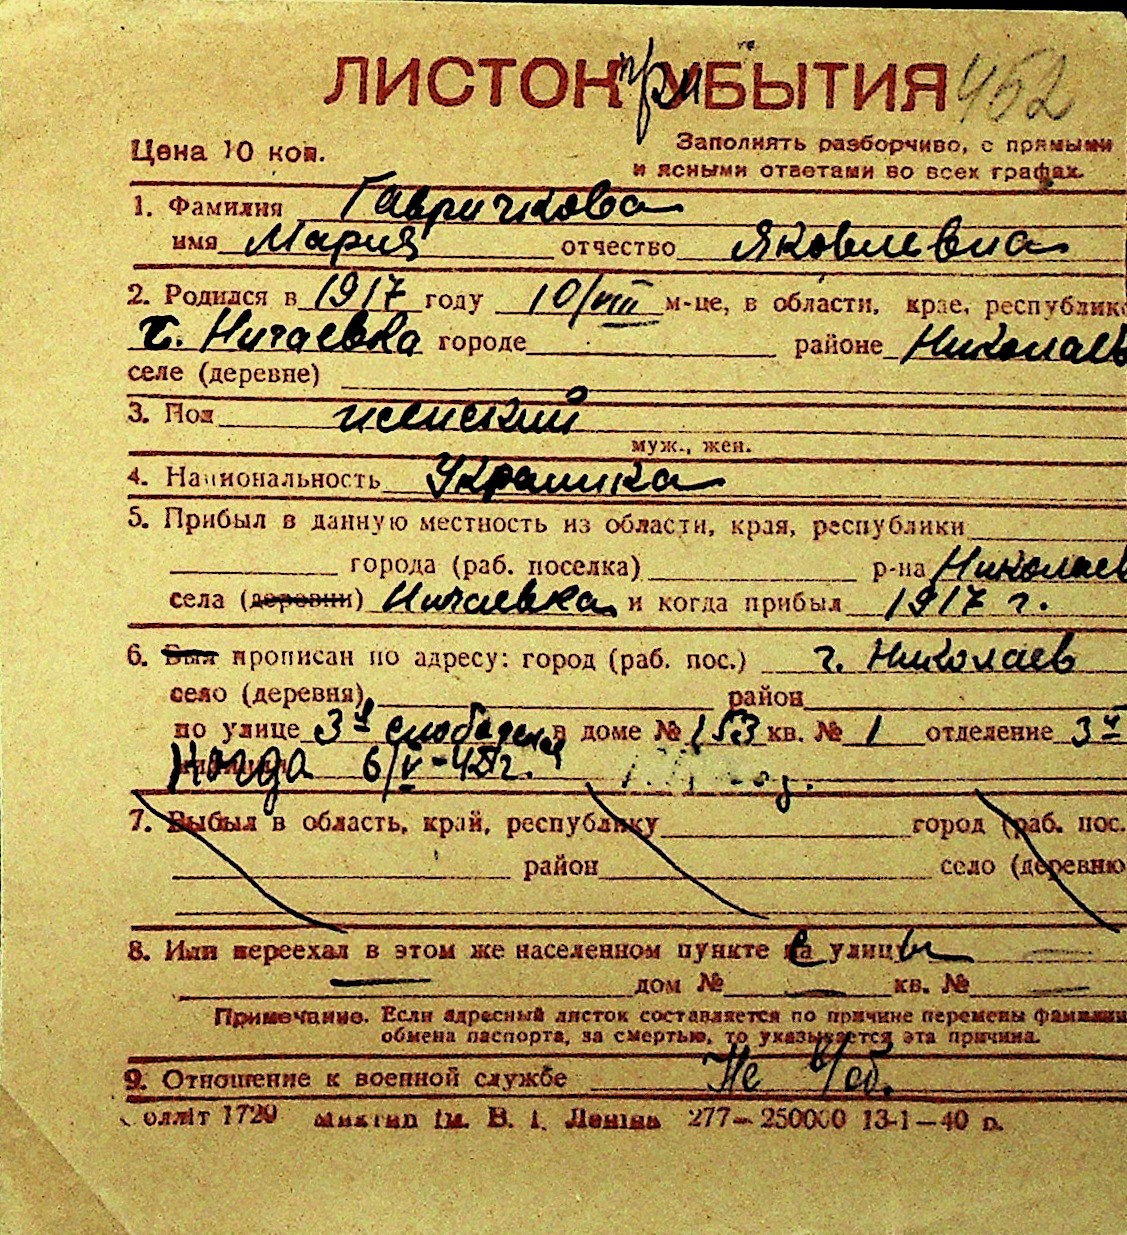 ЛИСТОК при УБЫТИЯ 462
Цена 10 коп.
Заполнять разборчиво, с прямыми
и ясными ответами во всех графах.
1. Фамилия Гавричкова
имя Мария отчество Яковлевна
2. Родился в 1917 году 10/VIII м-це, в области, крае, республике
с. Ничаевка городе районе Николаев
селе (деревне)
3. Пол женский
муж., жен.
4. Национальность Украинка
5. Прибыл в данную местность из области, края, республики
города (раб. поселка) р-на Николаев
села (деревни) Ничаевка и когда прибыл 1917 г.
6. Был прописан по адресу: город (раб. пос.) г. Николаев
село (деревня) район
по улице 3я слободская в доме № 153 кв. № 1 отделение 3я
Когда 6/V-45г.
7. Выбыл в область, край, республику город (раб. пос.
район село (деревню
8. Или переехал в этом же населенном пункте с улицы
дом № кв. №
Примечание. Если адресный листок составляется по причине перемены фамилии
обмена паспорта, за смертью, то указывается эта причина.
9. Отношение к военной службе Не в/об.
оллiт 1720 iм. В. I. Ленiна 277—250000 13-1—40 р.